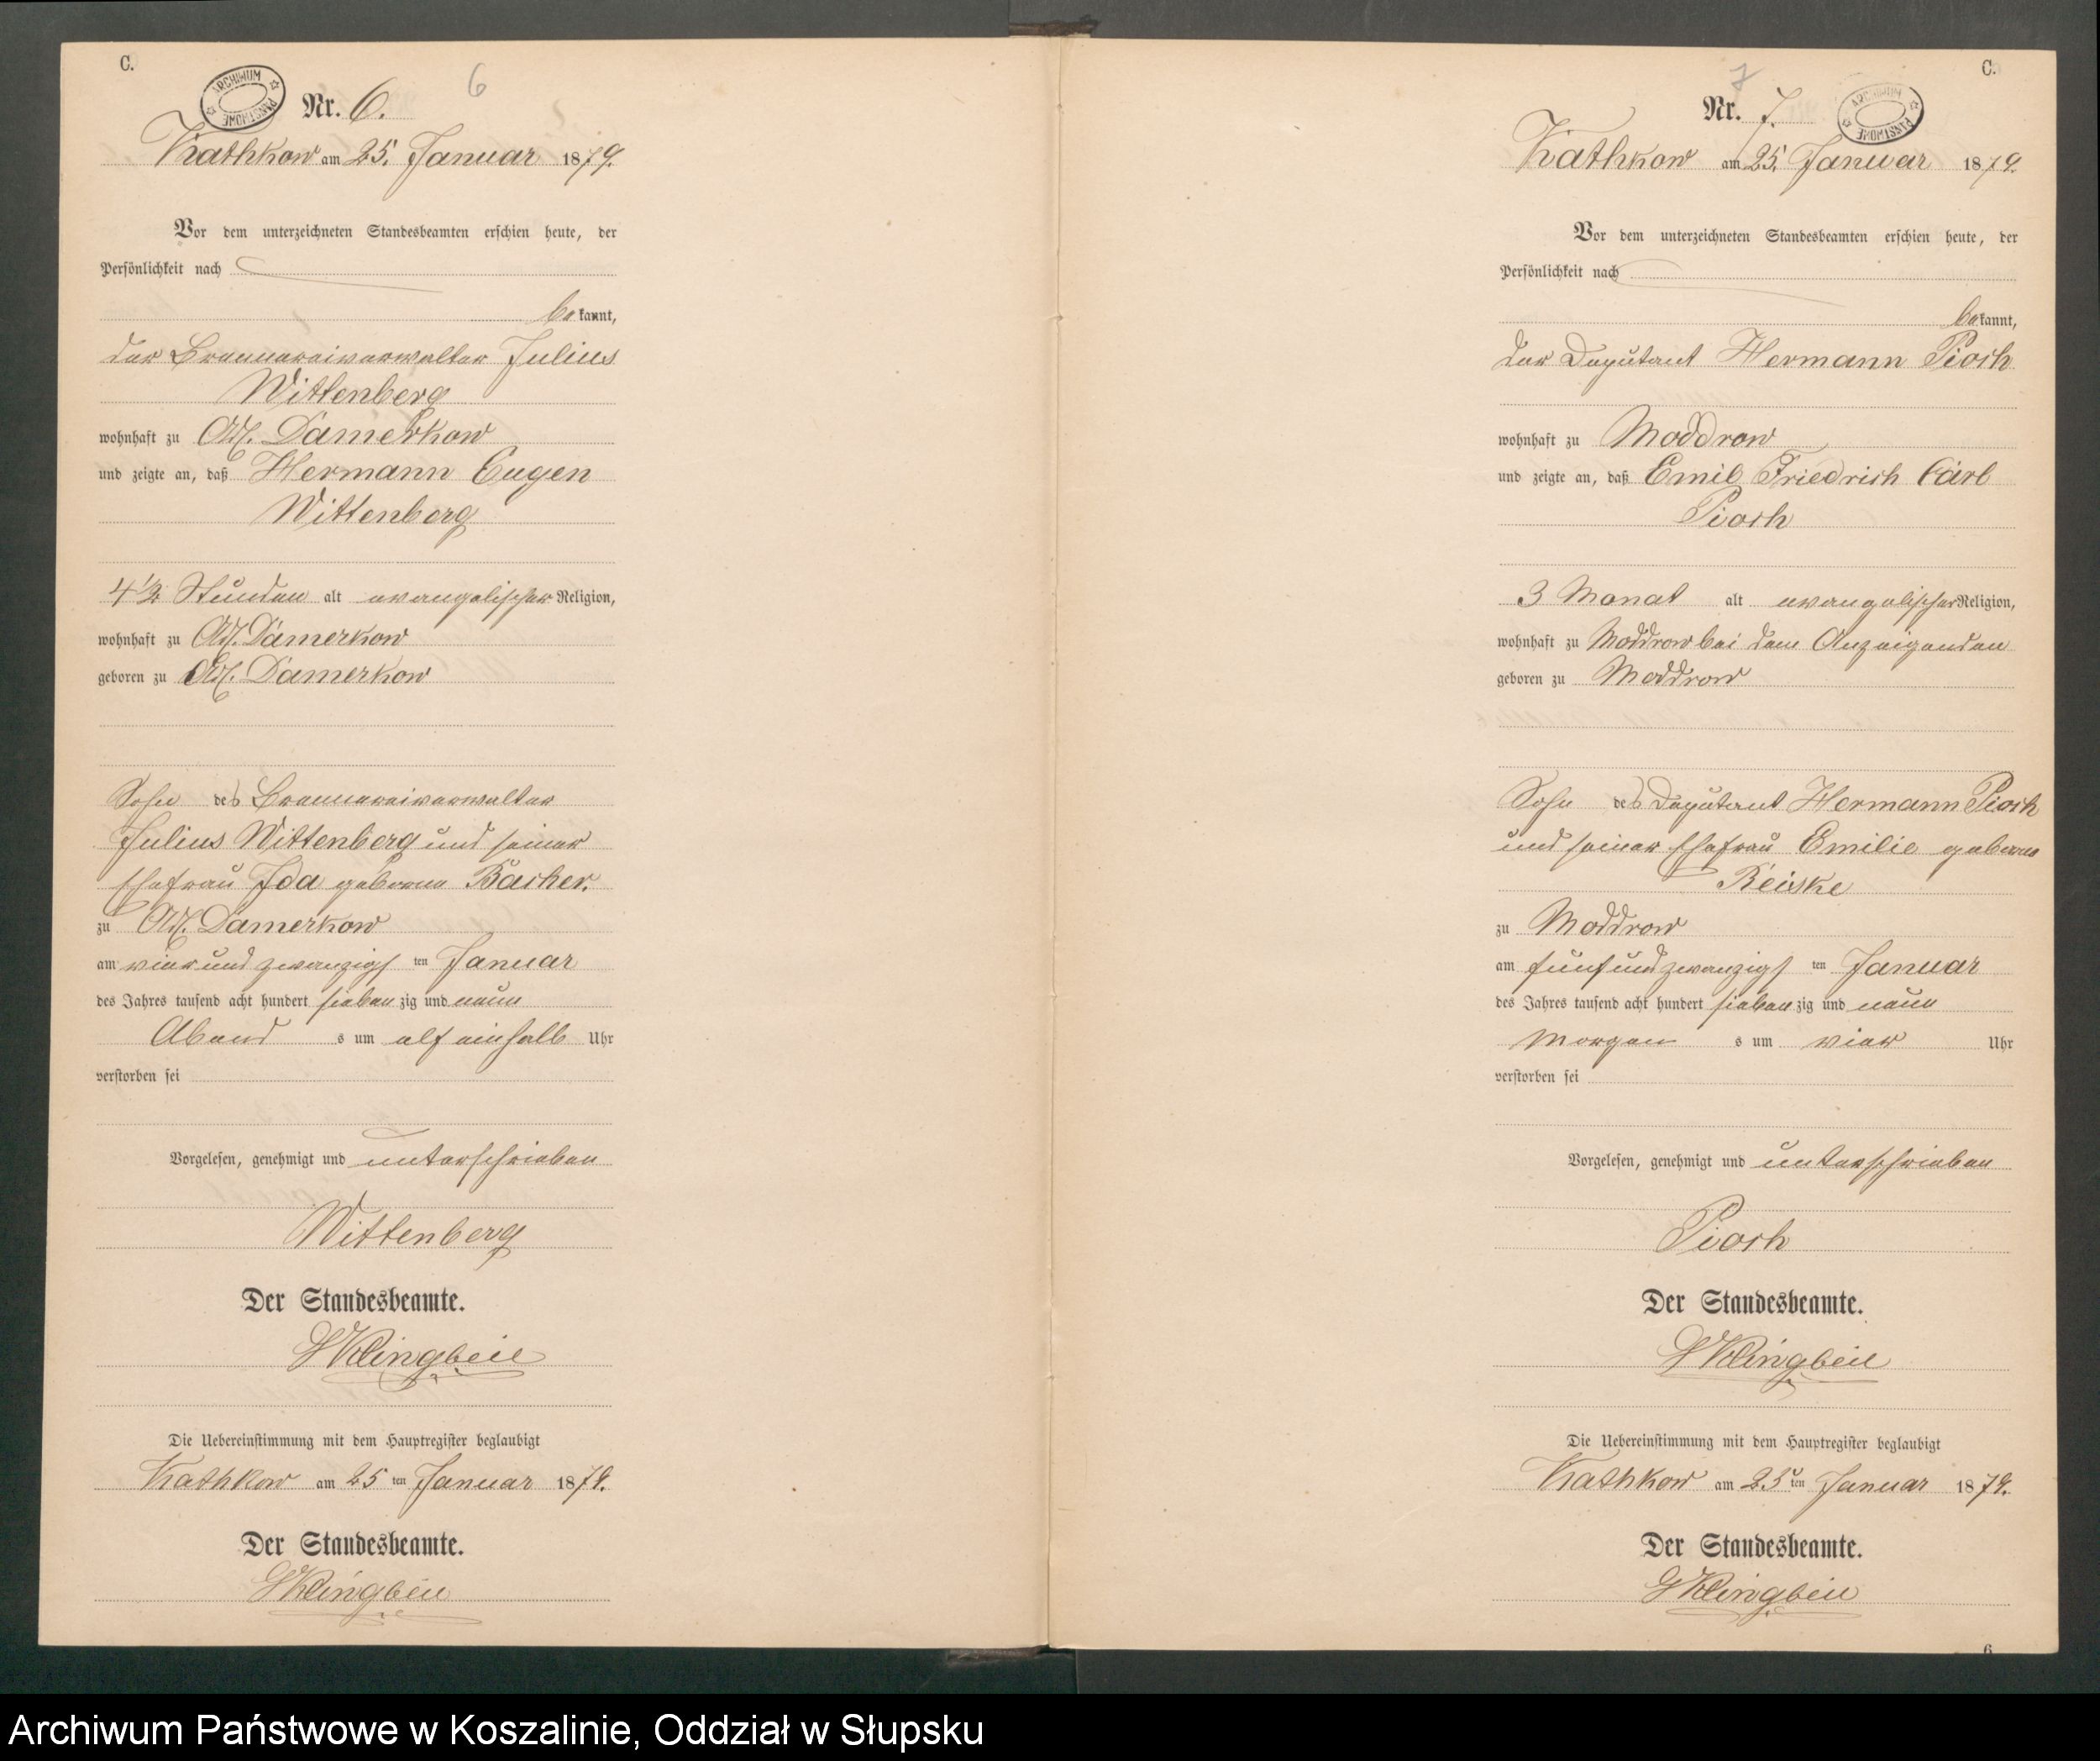 C.
ARCHIWUM PAŃSTWOWE
Nr. 6.
6
Kathkow am 25. Januar 1879.
Vor dem unterzeichneten Standesbeamten erschien heute, der
Persönlichkeit nach
bekannt,
der Brennereiverwalter Julius
Wittenberg
wohnhaft zu Adl. Damerkow
und zeigte an, daß Hermann Eugen
Wittenberg
4 1/2 Stunden alt evangelischer Religion,
wohnhaft zu Adl. Damerkow
geboren zu Adl. Damerkow
Sohn des Brennereiverwalter
Julius Wittenberg und seiner
Ehefrau Ida geborne Bäcker.
zu Adl. Damerkow
am vierundzwanzigs ten Januar
des Jahres tausend acht hundert sieben zig und neun
Abend s um elf einhalb Uhr
verstorben sei
Vorgelesen, genehmigt und unterschrieben
Wittenberg
Der Standesbeamte.
Klingbeil
Die Uebereinstimmung mit dem Hauptregister beglaubigt
Kathkow am 25 ten Januar 1879.
Der Standesbeamte.
Klingbeil
C.
7
Nr. 7.
ARCHIWUM PAŃSTWOWE
Kathkow am 25. Januar 1879.
Vor dem unterzeichneten Standesbeamten erschien heute, der
Persönlichkeit nach
bekannt,
der Deputant Hermann Pioch
wohnhaft zu Moddrow
und zeigte an, daß Emil Friedrich Carl
Pioch
3 Monat alt evangelischer Religion,
wohnhaft zu Moddrow bei dem Anzeigenden
geboren zu Moddrow
Sohn des Deputant Hermann Pioch
und seiner Ehefrau Emilie geborne
Reiske
zu Moddrow
am fünfundzwanzigs ten Januar
des Jahres tausend acht hundert sieben zig und neun
Morgen s um vier Uhr
verstorben sei
Vorgelesen, genehmigt und unterschrieben
Pioch
Der Standesbeamte.
Klingbeil
Die Uebereinstimmung mit dem Hauptregister beglaubigt
Kathkow am 25 ten Januar 1879.
Der Standesbeamte.
Klingbeil
6
Archiwum Państwowe w Koszalinie, Oddział w Słupsku